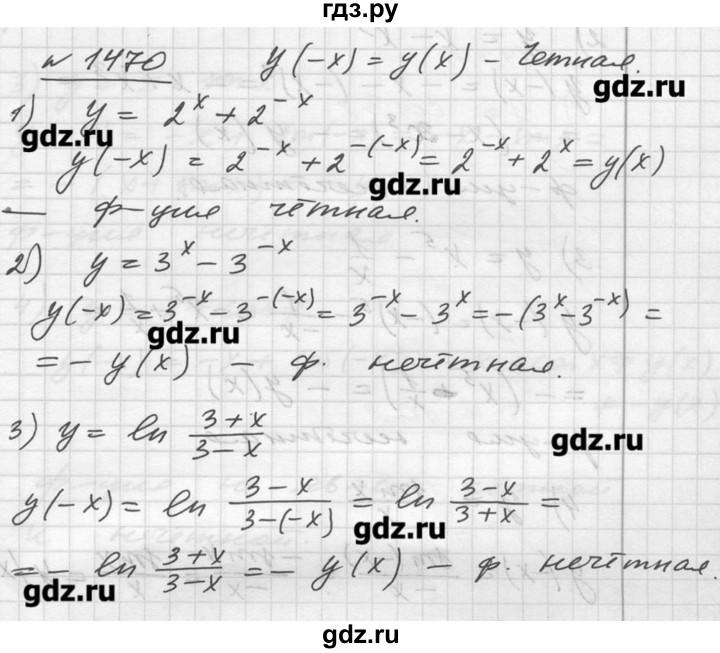 гдз.ру
№ 1470 y(-x) = y(x) – Четная.
gdz.ru
1) y = 2^x + 2^{-x}
gdz.ru
y(-x) = 2^{-x} + 2^{-(-x)} = 2^{-x} + 2^x = y(x)
gdz.ru
— ф-ция чётная.
2) y = 3^x - 3^{-x}
y(-x) = 3^{-x} - 3^{-(-x)} = 3^{-x} - 3^x = -(3^x - 3^{-x}) =
gdz.ru
= - y(x) – ф. нечётная.
3) y = ln \frac{3+x}{3-x}
gdz.ru
y(-x) = ln \frac{3-x}{3-(-x)} = ln \frac{3-x}{3+x} =
gdz.ru
= - ln \frac{3+x}{3-x} = - y(x) – ф. нечётная.
gdz.ru
gdz.ru